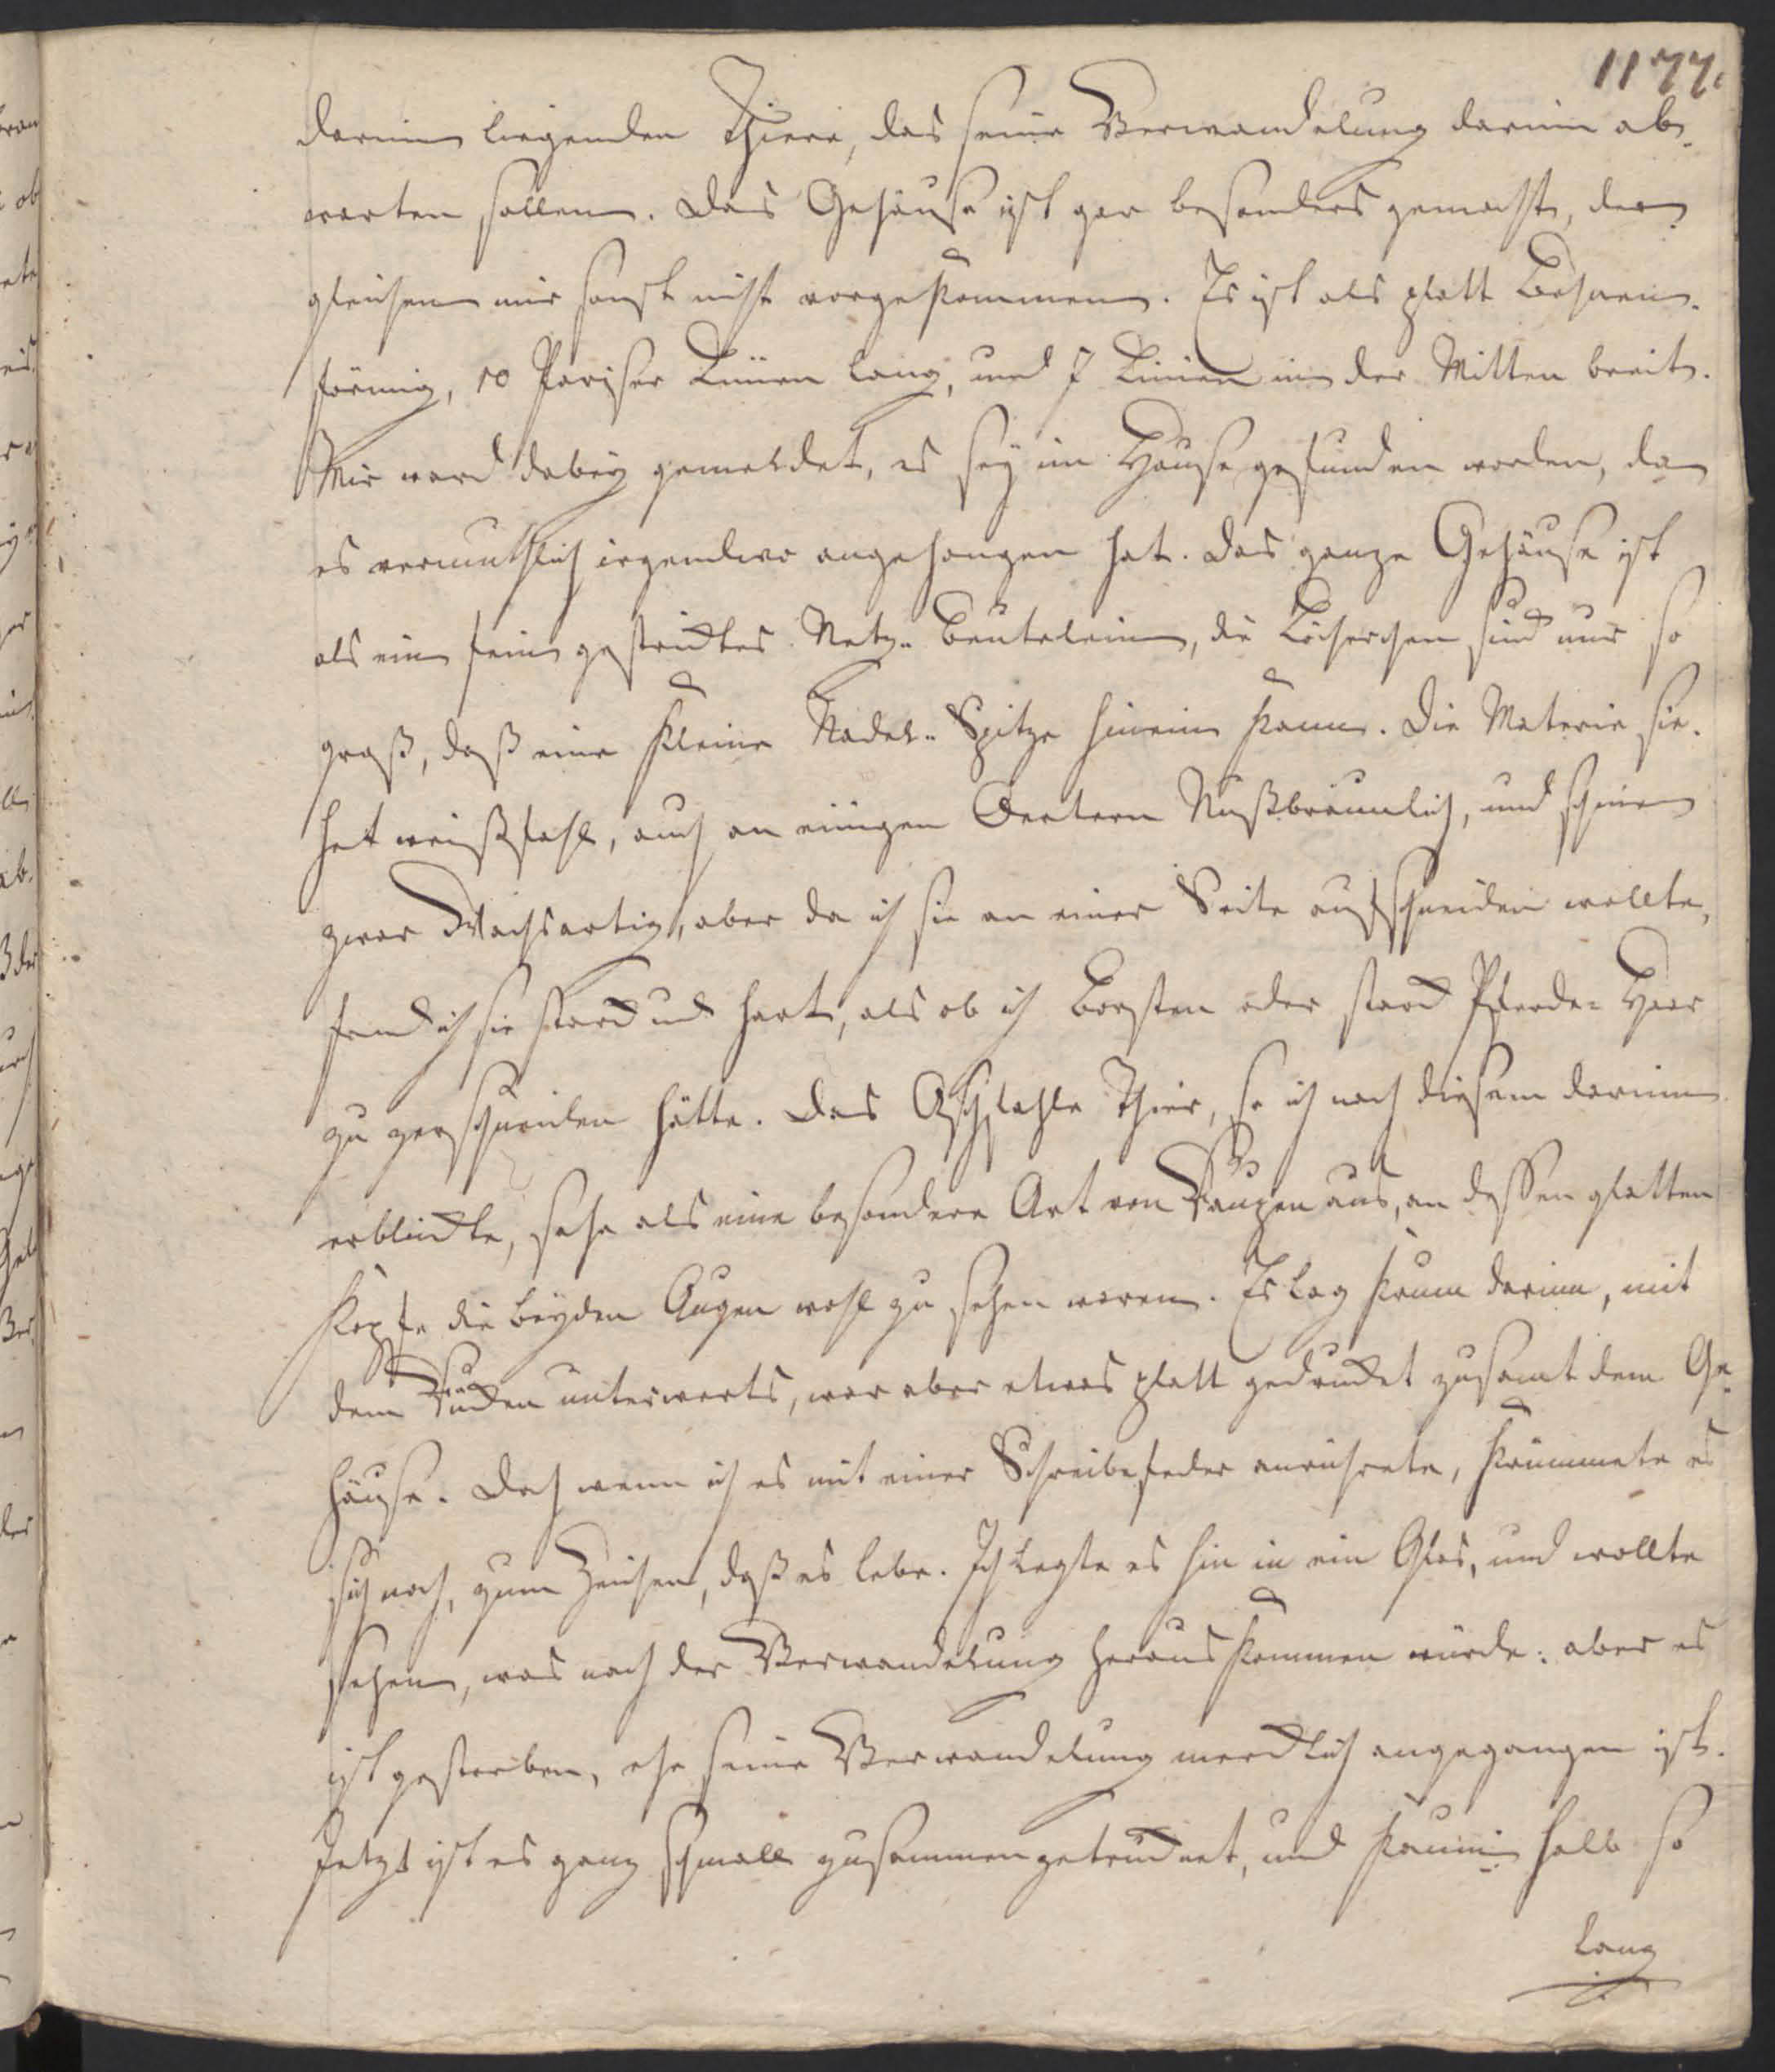 1177.
darinn liegenden Thiere, das seine Verwandelung darinn ab-
warten sollen. Das Gehäuse ist gar besonders gemacht, der-
gleichen mir sonst nicht vorgekommen. Es ist als platt Bohnen-
förmig, 10 Pariser Linien lang, und 7 Linien in der Mitten breit.
Mir ward dabey gemeldet, es sey im Hause gefunden worden, da
es vermuthlich irgendwo angehangen hat. Das ganze Gehäuse ist
als ein fein gestricktes Netz-Beutelein, die Löcherchen sind nur so
groß, daß eine kleine Nadel-Spitze hinein kann. Die Materie sie-
het weißfahl, auch an einigen Oertern Nußbräunlich, und schien
zwar Wachsartig, aber da ich sie an einer Seite aufschneiden wollte,
fand ich sie starck und hart, als ob ich Borsten oder starck Pferde-Haar
zu zerschneiden hätte. Das Aschfahle Thier, so ich nach diesem darinn
erblickte, sahe als eine besondere Art von Raupen aus, an dessen glatten
Kopfe die beyden Augen wohl zu sehen waren. Es lag krum darinn, mit
dem Rücken unterwerts, war aber etwas platt gedrucket zusamt dem Ge-
häuse. Doch wenn ich es mit einer Schreibefeder anrührete, krümmete es
sich noch, zum Zeichen, daß es lebe. Ich legte es hin in ein Glas, und wollte
sehen, was nach der Verwandelung heraus kommen würde: aber es
ist gestorben, ehe seine Verwandelung mercklich angegangen ist.
Jetzt ist es ganz schmall zusammen getrucknet, und kaum halb so
lang